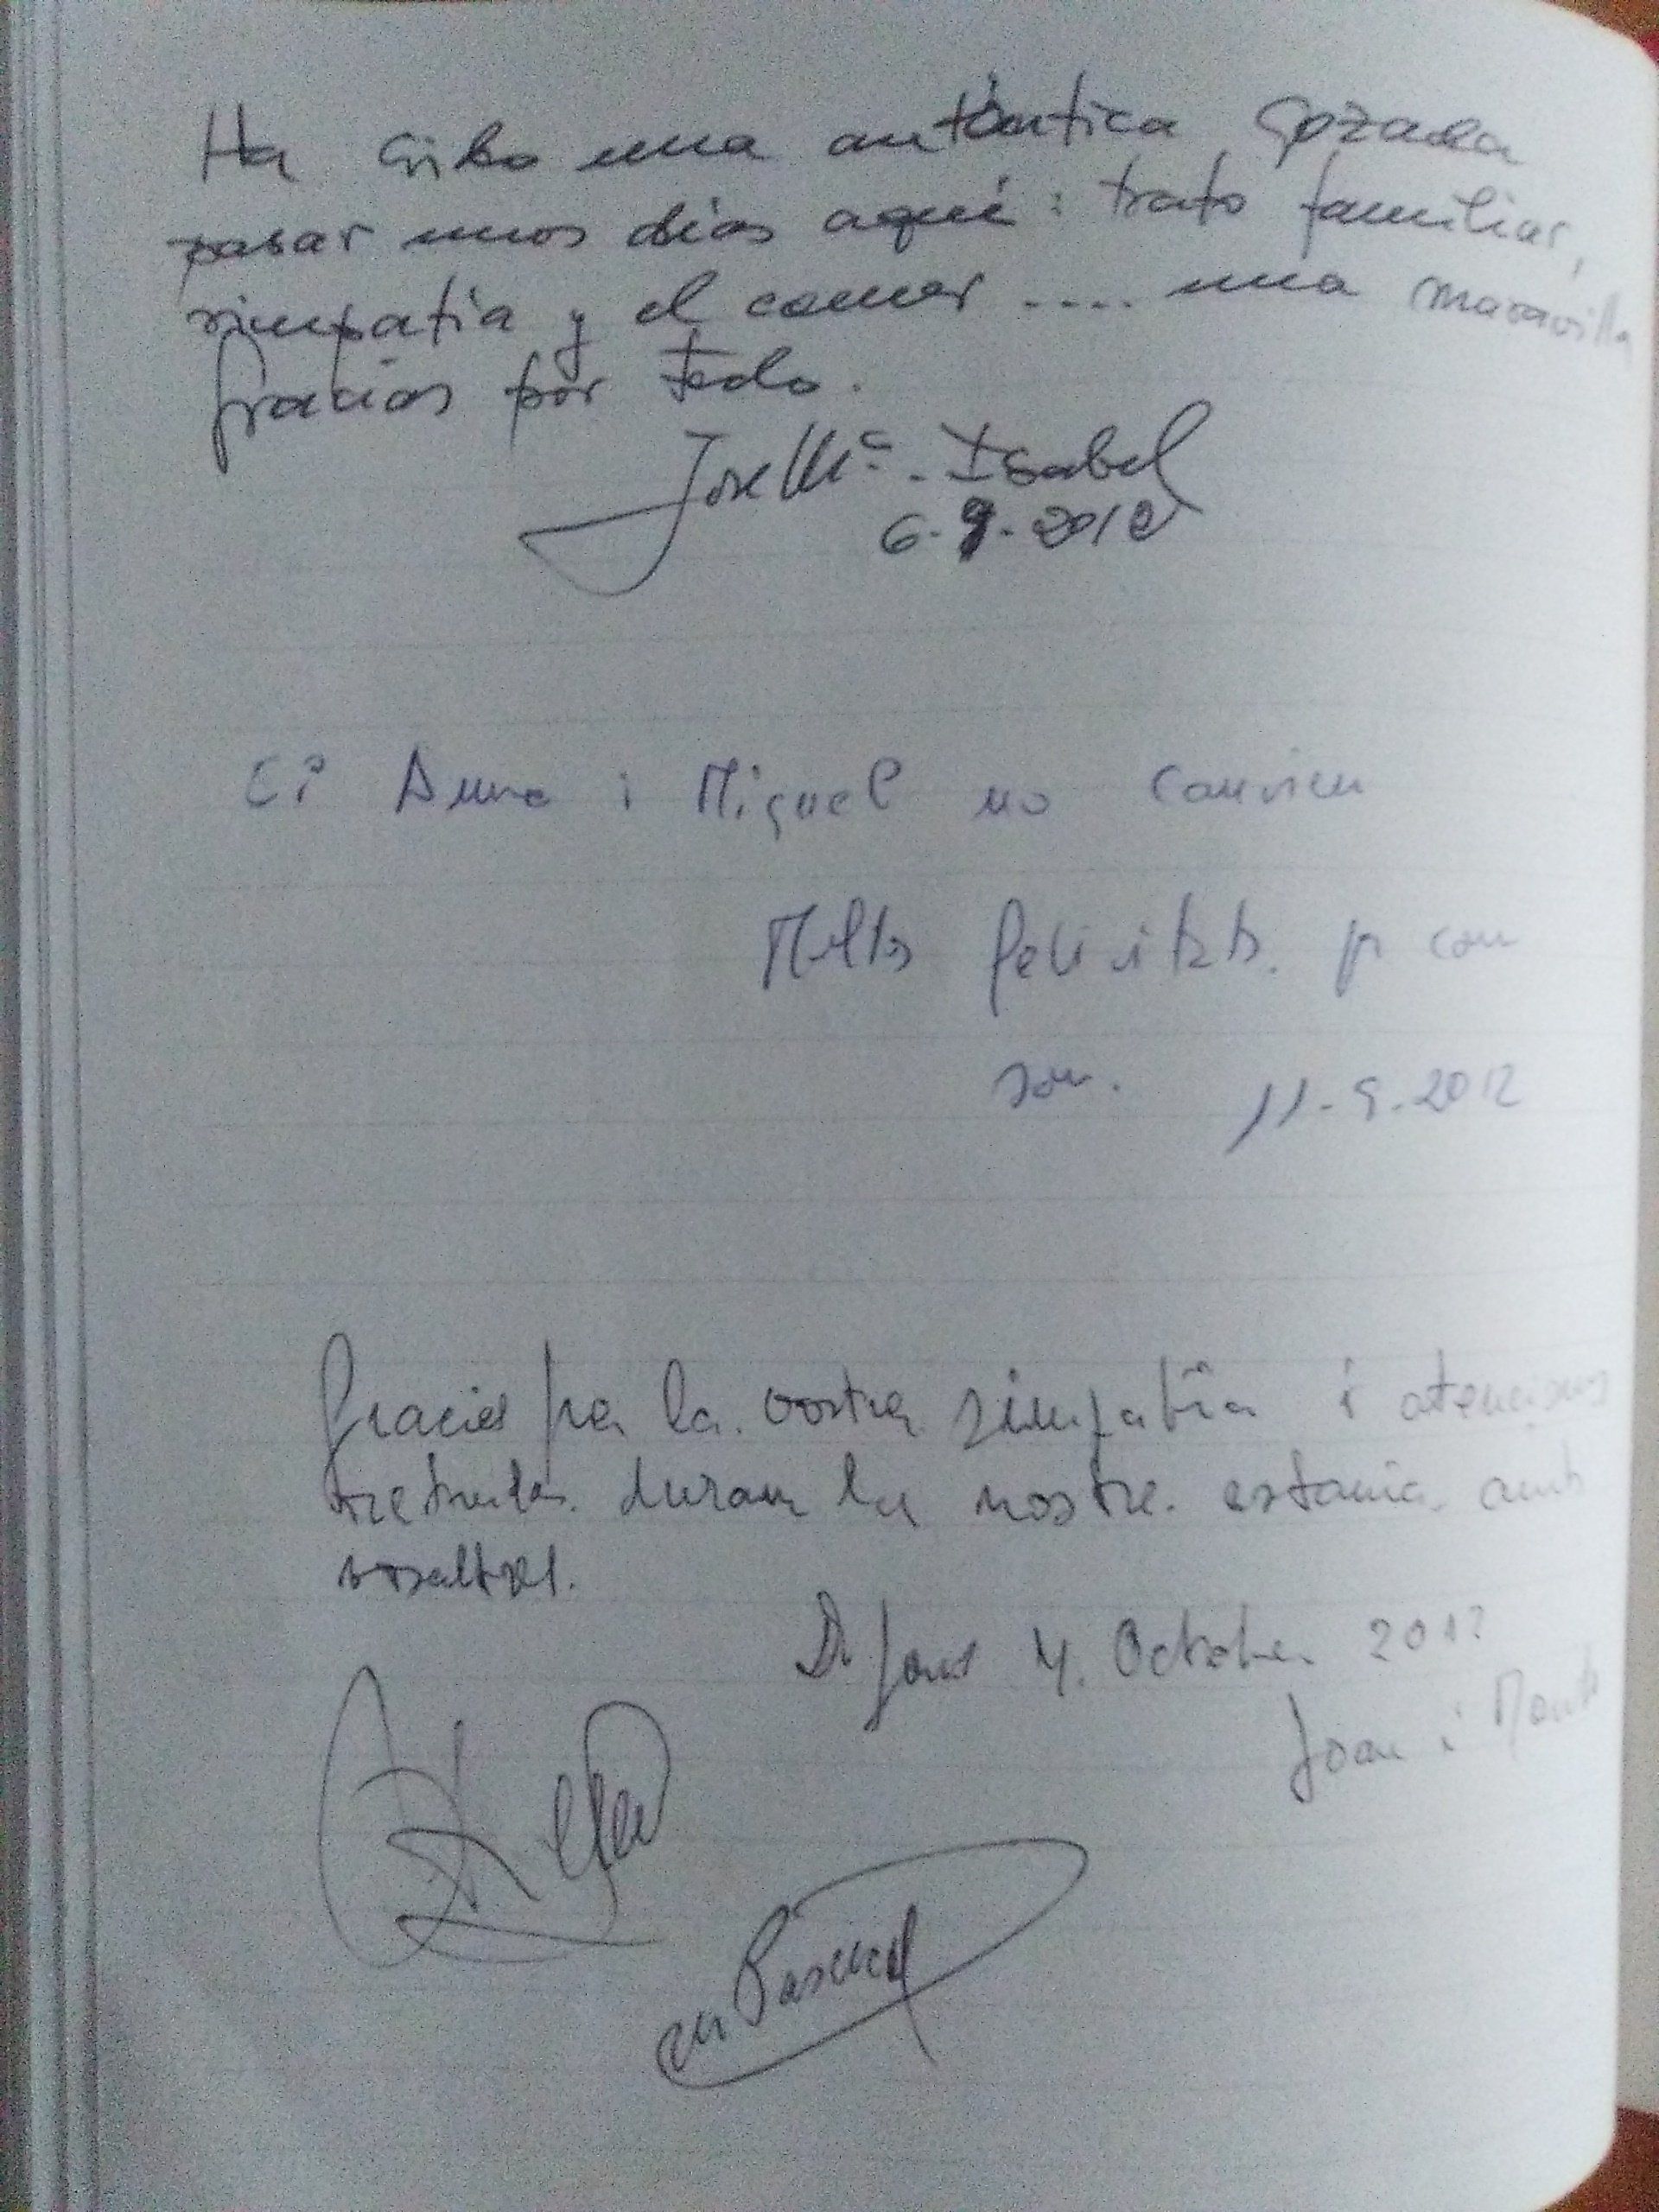 Ha sido una auténtica gozada
pasar unos días aquí: trato familiar,
simpatia y el comer .... una maravilla
Gracias por todo.
Jose Mª - Isabel
6-9-2012
Anna i Miquel no canvieu
Moltes felicitats. per com
sou. 11-9-2012
Gracies per la vostra simpatia i atencions
durant la nostre. estancia. amb
vosaltres.
4. Octobre. 2012
Joan i
Pascual